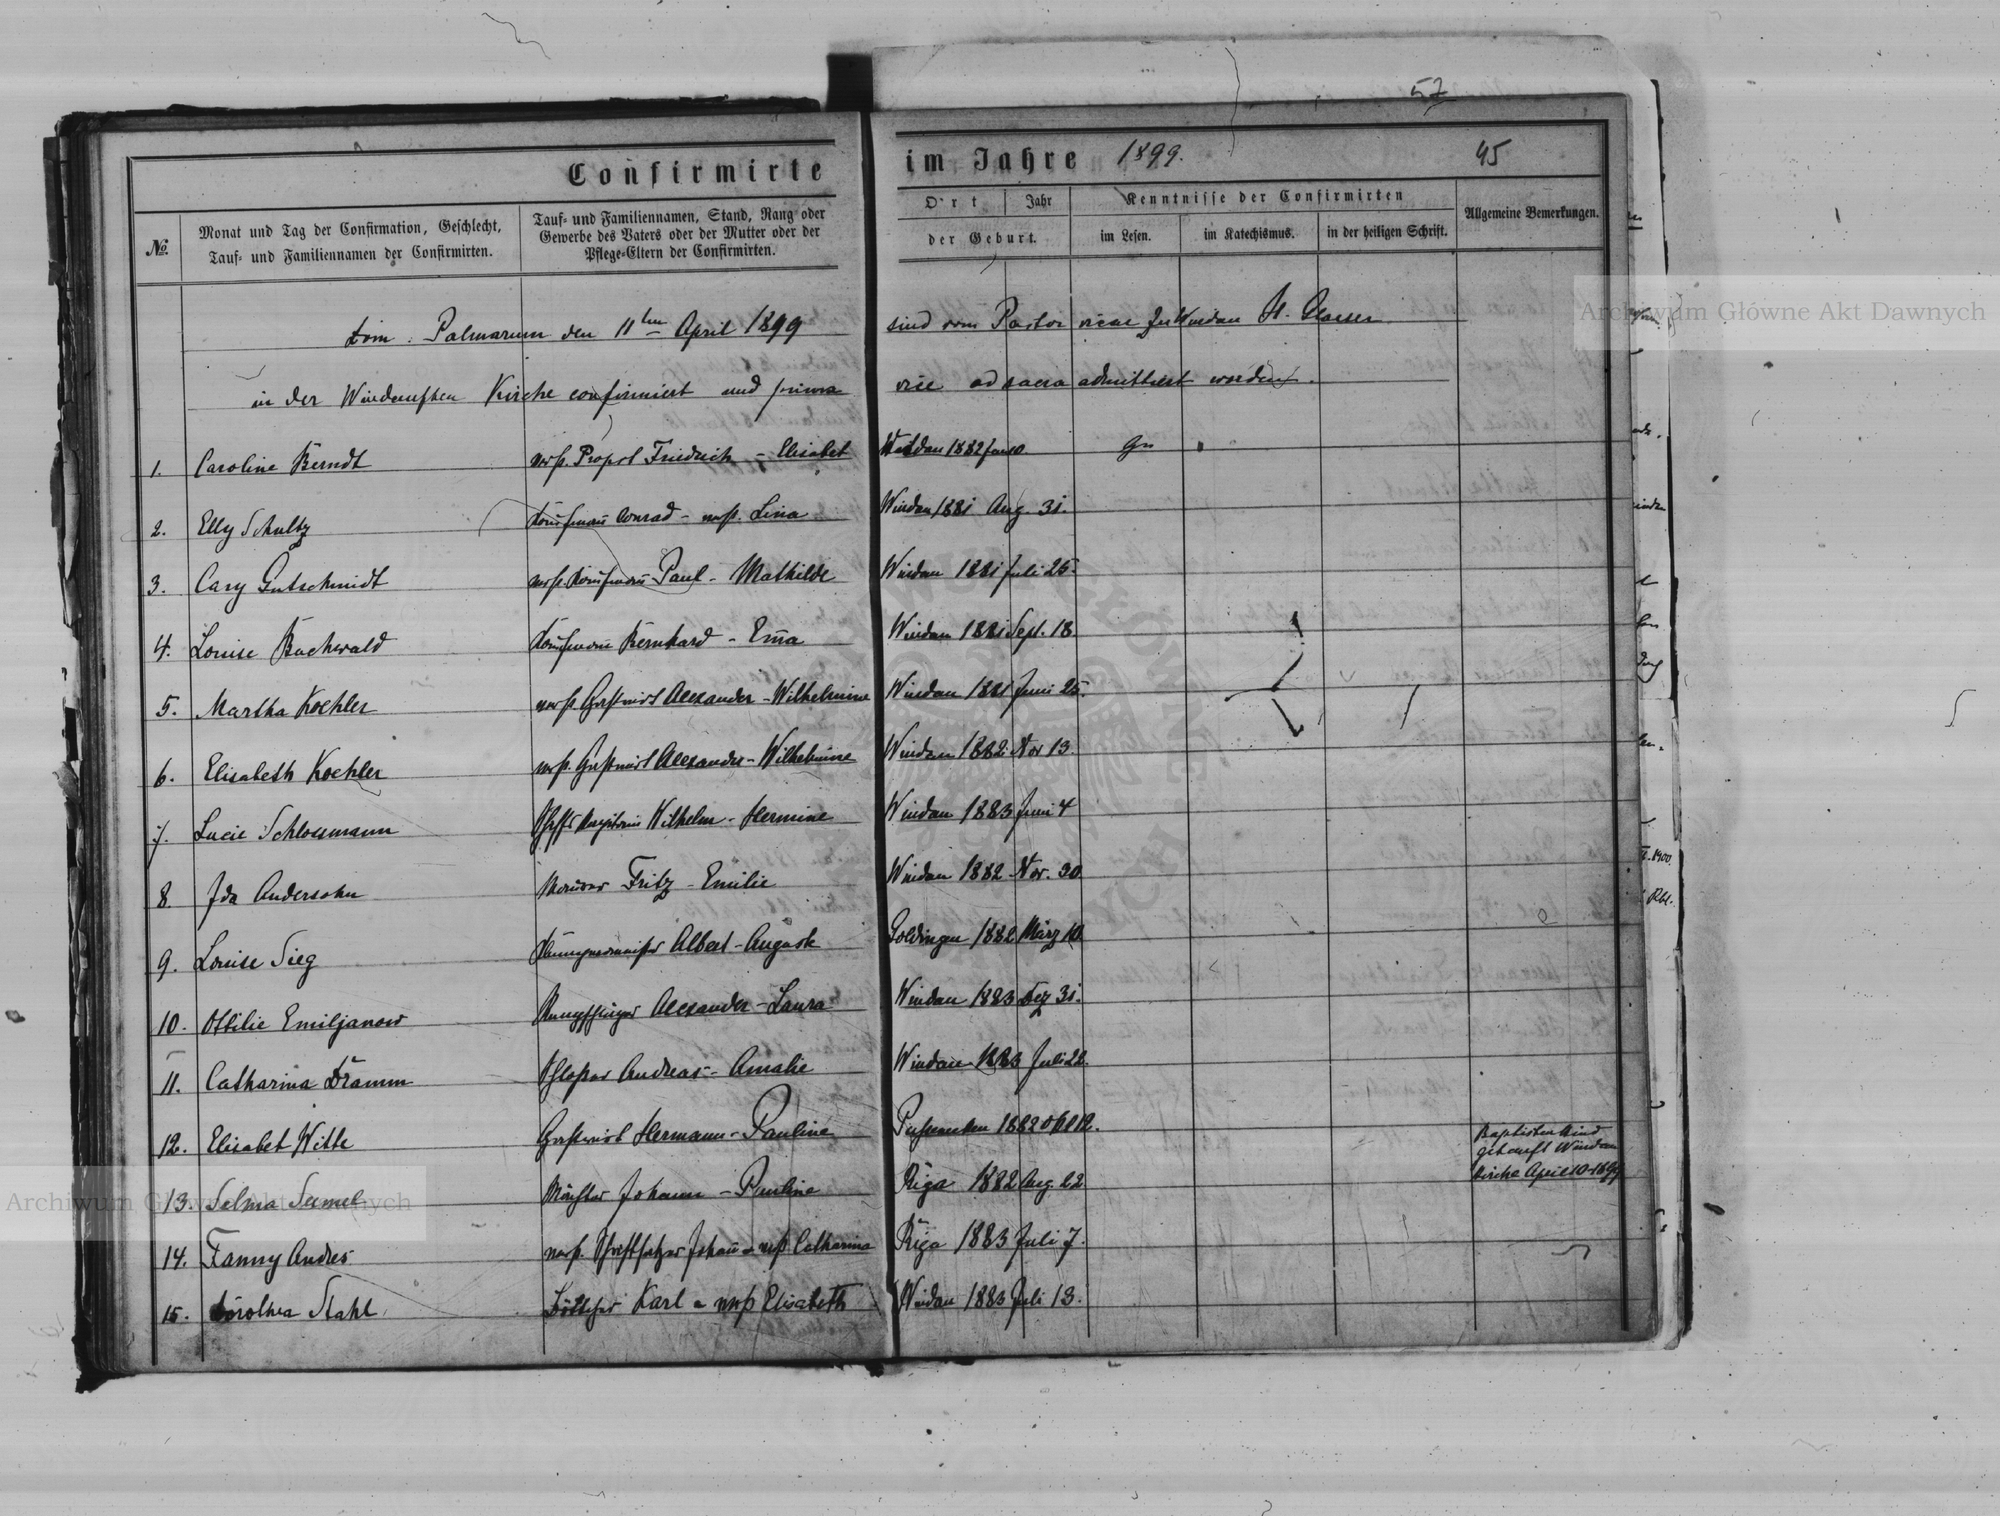 57
Confirmirte im Jahre 1899. 45
№ Monat und Tag der Confirmation, Geschlecht, Tauf- und Familiennamen der Confirmirten.
Tauf- und Familiennamen, Stand, Rang oder Gewerbe des Vaters oder der Mutter oder der Pflege-Eltern der Confirmirten.
Ort Jahr der Geburt.
Kenntnisse der Confirmirten
im Lesen. im Katechismus. in der heiligen Schrift.
Allgemeine Bemerkungen.
Dom. Palmarum den 11ten April 1899 sind vom Pastor vicar zu Windau H.
in der Windauschen Kirche confirmiert und prima vice ad sacra admittiert worden.
1. Caroline Berndt verst. Propst Friedrich - Elisabet 1882 Jan 10
2. Elly Schultz Kaufmann Conrad - verst. Lina Windau 1881 Aug 31.
3. Cary Gutschmidt verst. Kaufmann Paul - Mathilde Windau 1881 Juli 25.
4. Louise Buchwald Kaufmann Bernhard - Em̄a Windau 1881 Sept. 18
5. Martha Koehler verst. Gastwirt Alexander - Wilhelmine Windau 1881 Juni 25.
6. Elisabeth Koehler verst. Gastwirt Alexander - Wilhelmine Windau 1882 Nov 13.
7. Lucie Schlossmann Schiffs Wilhelm - Hermine Windau 1883 Juni 4
8. Ida Andersohn Maurer Fritz - Emilie Windau 1882 Nov. 30
9. Louise Sieg Albert - Auguste Goldingen 1882 März 10
10. Ottilie Emiljanow Alexander - Laura Windau 1883 Dez 31.
11. Catharina Dramm Schlosser Andreas - Amalie Windau 1883 Juli 22.
12. Elisabet Witte Gastwirt Hermann - Pauline 1882
Baptisten Kind
getauft Windau
Kirche April 10 1899
13. Selma Johann - Pauline Riga 1882 Aug. 22
14. Fanny Andres verst. Schriftsetzer Johan̄ u verst. Catharina Riga 1883 Juli 7.
15. Dorothea Stahl Böttcher Karl u verst Elisabeth Windau 1883 Juli 13.
Archiwum Główne Akt Dawnych
Archiwum Główne Akt Dawnych